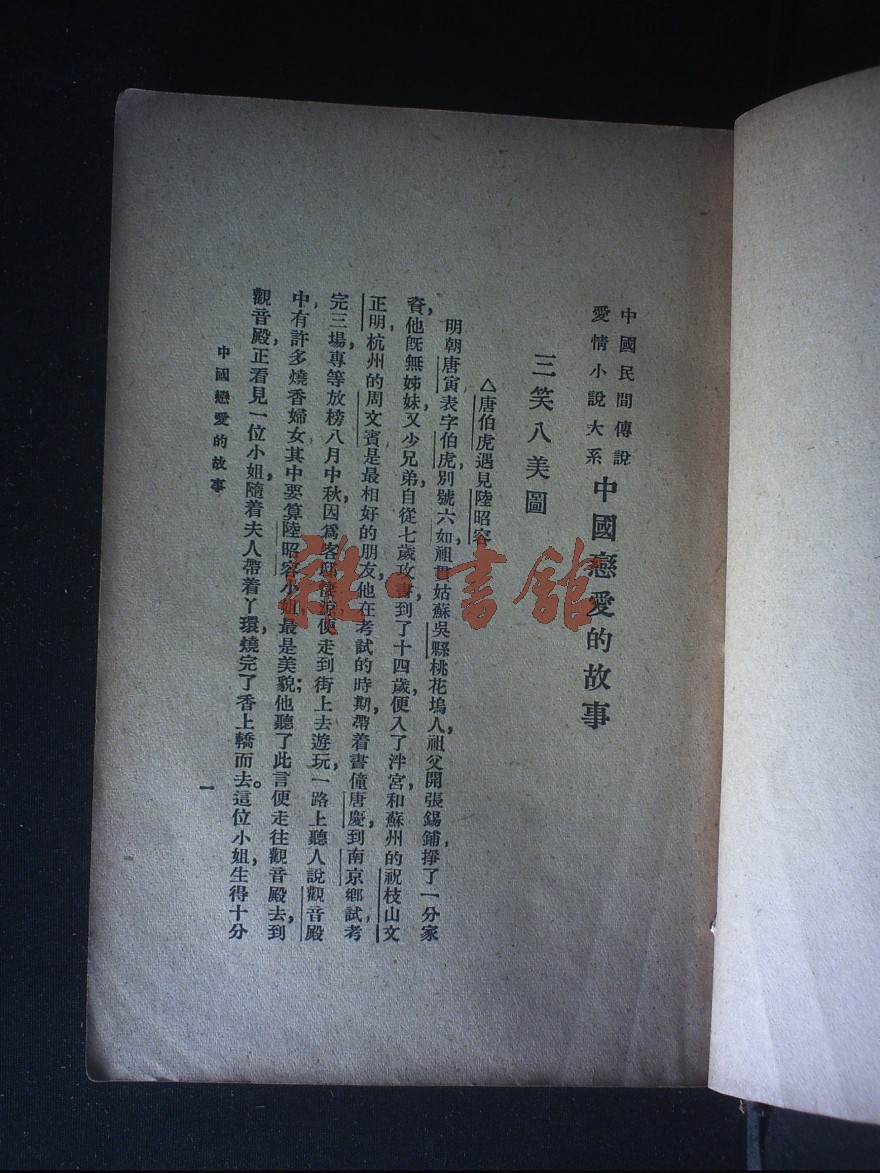 中國民間傳說
愛情小說大系
中國戀愛的故事
三笑八美圖
△唐伯虎遇見陸昭容
明朝唐寅表字伯虎，別號六如祖貫姑蘇吳縣桃花塢人，祖父開張錫鋪，掙了一分家
資，他既無姊妹，又少兄弟，自從七歲攻書，到了十四歲，便入了泮宮，和蘇州的祝枝山，文
正明，杭州的周文賓是最相好的朋友，他在考試的時期，帶着書僮唐慶，到南京鄉試，考
完三場，專等放榜，八月中秋，因爲客邸淒涼，便走到街上去遊玩，一路上聽人說觀音殿
中，有許多燒香婦女，其中要算陸昭容小姐，最是美貌；他聽了此言，便走往觀音殿去，到
觀音殿，正看見一位小姐，隨着夫人帶着丫環，燒完了香，上轎而去。這位小姐，生得十分
中國戀愛的故事
一
雜·書館